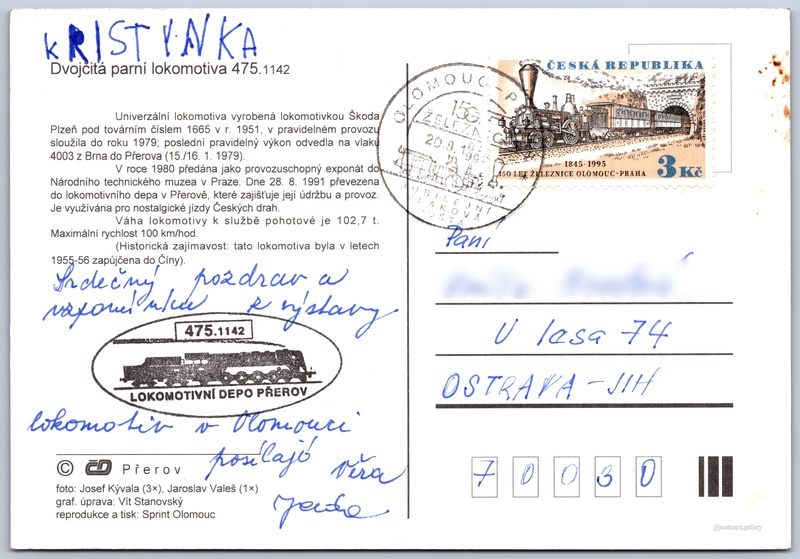 KRISTÝNKA
Dvojčitá parní lokomotiva 475.1142
Univerzální lokomotiva vyrobená lokomotivkou Škoda
Plzeň pod továrním číslem 1665 v r. 1951, v pravidelném provozu
sloužila do roku 1979; poslední pravidelný výkon odvedla na vlaku
4003 z Brna do Přerova (15./16. 1. 1979).
V roce 1980 předána jako provozuschopný exponát do
Národního technického muzea v Praze. Dne 28. 8. 1991 převezena
do lokomotivního depa v Přerově, které zajišťuje její údržbu a provoz.
Je využívána pro nostalgické jízdy Českých drah.
Váha lokomotivy k službě pohotové je 102,7 t.
Maximální rychlost 100 km/hod.
(Historická zajímavost: tato lokomotiva byla v letech
1955-56 zapůjčena do Číny).
Srdečný pozdrav a
vzpomínku z výstavy
475.1142
LOKOMOTIVNÍ DEPO PŘEROV
lokomotiv v Olomouci
posílají Věra
© ČD Přerov
foto: Josef Kývala (3×), Jaroslav Valeš (1×)
graf. úprava: Vít Stanovský
reprodukce a tisk: Sprint Olomouc
ČESKÁ REPUBLIKA
1845-1995
150 LET ŽELEZNICE OLOMOUC-PRAHA
3 Kč
OLOMOUC
150
ŽELEZNIC
POŠTA
Paní
U lesa 74
OSTRAVA-JIH
70030
postcard.gallery